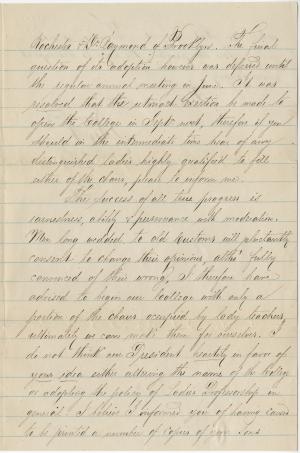 Rochester & Dr. Raymond of Brooklyn. The final
question of its adoption however was deferred until
the regular annual meeting in June. It was
resolved that the utmost exertion be made to
open the College in Sept. next, therefore if you
should in the intermediate time hear of any
distinguished ladies highly qualified to fill
either of the chairs, please to inform me.
The success of all true progress is
earnestness, ability & perseverance with moderation.
Men long wedded to old customs will reluctantly
consent to change their opinions, altho' fully
convinced of their wrong, I therefore have
advised to begin our College with only a
portion of the chairs occupied by lady teachers,
ultimately we can make them for ourselves. I
do not think our President heartily in favor of
your idea either altering the name of the College
or adopting the policy of Ladies Professorship in
general. I believe I informed you of having caused
to be printed a number of copies of your